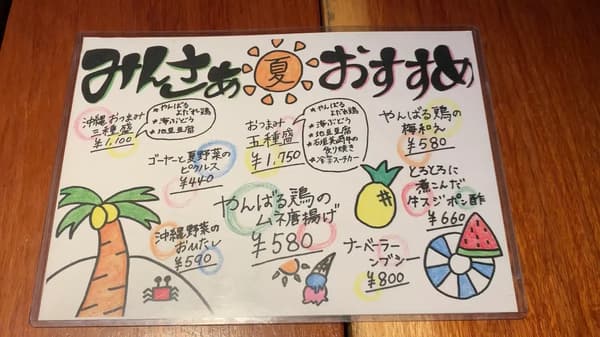 みんさぁ 夏 おすすめ
沖縄おつまみ
三種盛
¥1,100
★やんばる
よだれ鶏
★海ぶどう
★地豆豆腐
おつまみ
五種盛
¥1,750
★やんばる
よだれ鶏
★海ぶどう
★地豆豆腐
★石垣美崎牛の
炙り焼き
★冷製スーチカー
やんばる鶏の
梅和え
¥580
ゴーヤーと夏野菜の
ピクルス
¥440
とろとろに
煮こんだ
牛スジポン酢
¥660
やんばる鶏の
ムネ唐揚げ
¥580
沖縄野菜の
おひたし
¥590
ナーベーラー
ンブシー
¥800